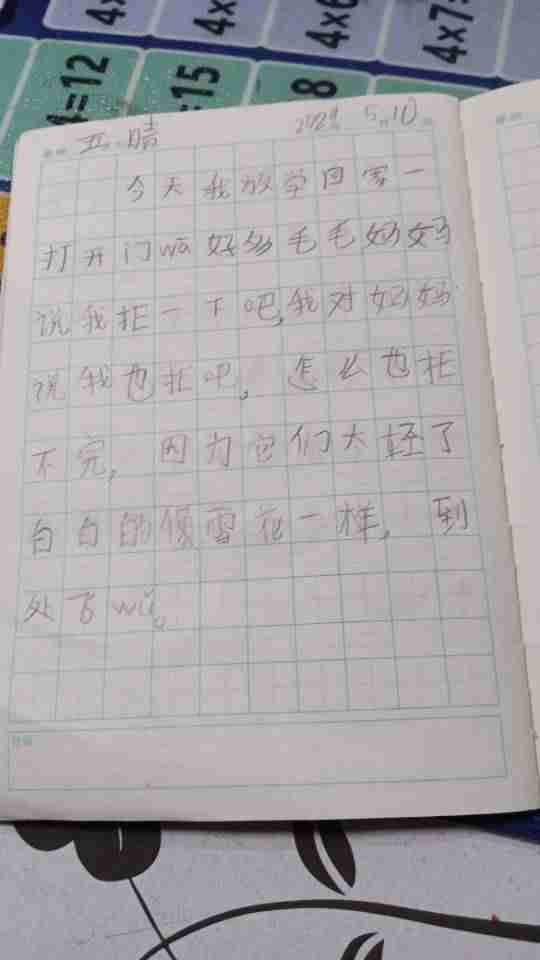 4×
4×6
4×7=
4=12
=15
8
五.晴 2024 5月10日
今天我放学回家一
打开门wā好多毛毛妈妈
说我拒一下吧,我对妈妈
说我也拒吧。怎么也拒
不完,因为它们太轻了
白白的像雪花一样,到
处飞wǔ。